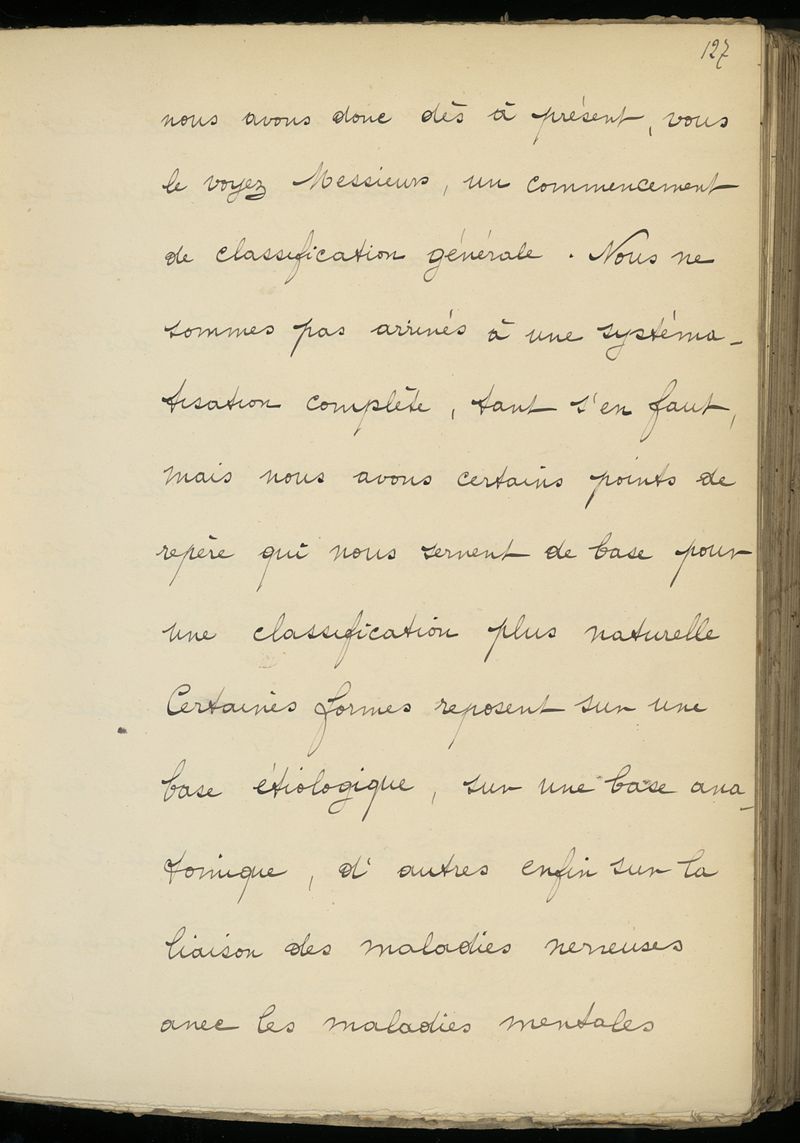 127
nous avons donc dès à présent, vous
le voyez Messieurs, un commencement
de classification générale. Nous ne
sommes pas arrivés à une systéma-
tisation complète, tant s'en faut,
mais nous avons certains points de
repère qui nous servent de base pour
une classification plus naturelle
Certaines formes reposent sur une
base étiologique, sur une base ana-
tomique, d'autres enfin sur la
liaison des maladies nerveuses
avec les maladies mentales